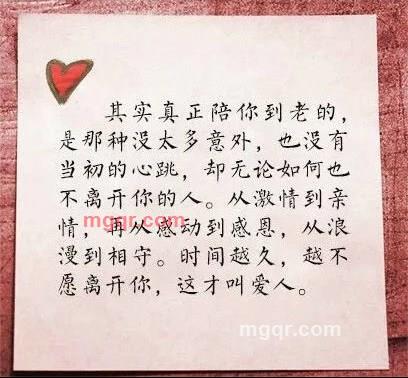 其实真正陪你到老的，
是那种没太多意外，也没有
当初的心跳，却无论如何也
不离开你的人。从激情到亲
情，再从感动到感恩，从浪
漫到相守。时间越久，越不
愿离开你，这才叫爱人。
mgqr.com
mgqr.com